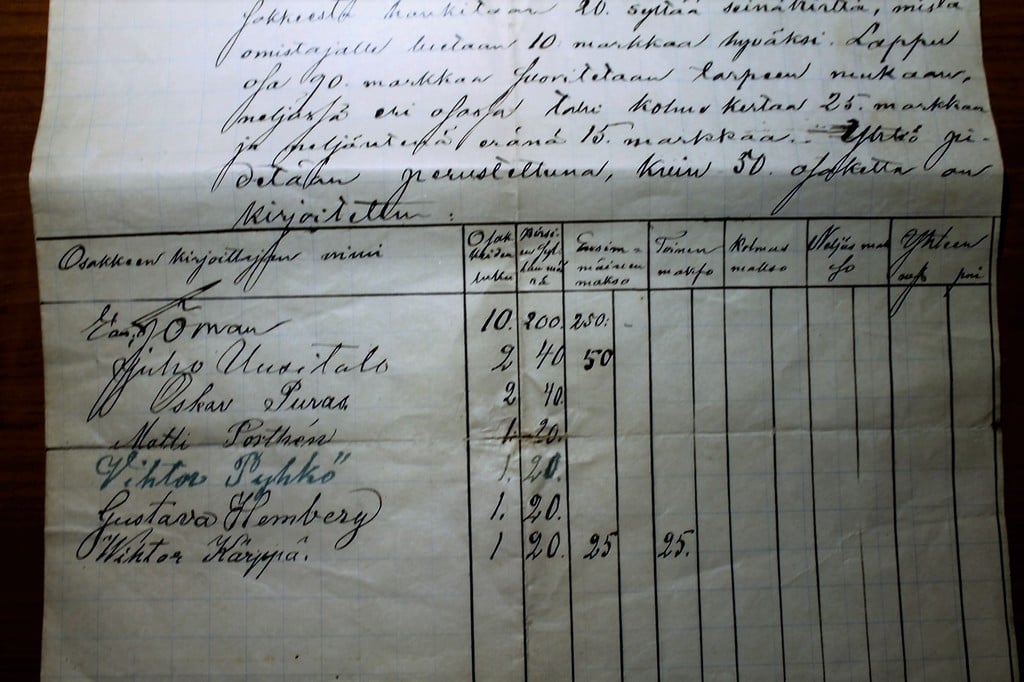 hankitaan 20. syltää seinähirttä, mistä
omistajalle luetaan 10 markkaa hyväksi. Loppu
osa 90. markkaa suoritetaan tarpeen mukaan,
neljässä eri osassa kolme kertaa 25. markkaa
ja neljäntenä eränä 15. markkaa. Yhtiö pi-
detään perustettuna, kuin 50. osaketta on
kirjoitettu:
Osakkeen kirjoittajien nimi Ensim=mäinen makso Toinen makso Kolmas makso Neljäs makso Yhteen
Öman 10. 200. 250.
Juho Uusitalo 2 40 50
Oskar Puras 2 40.
Matti Porthén 1. 20.
Vihtor Pyhkö 1. 20.
Gustava Hemberg 1. 20.
Wihtor Kärppä. 1 20. 25 25.